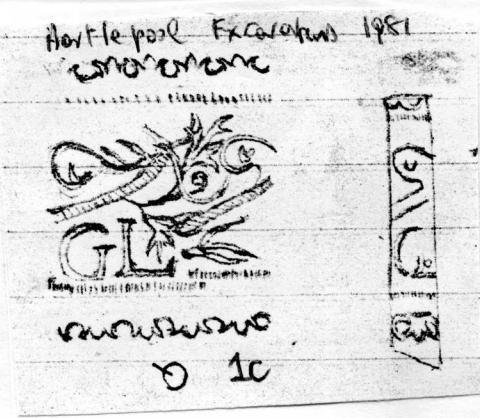 Hartlepool Excavations 1981
GL
1c